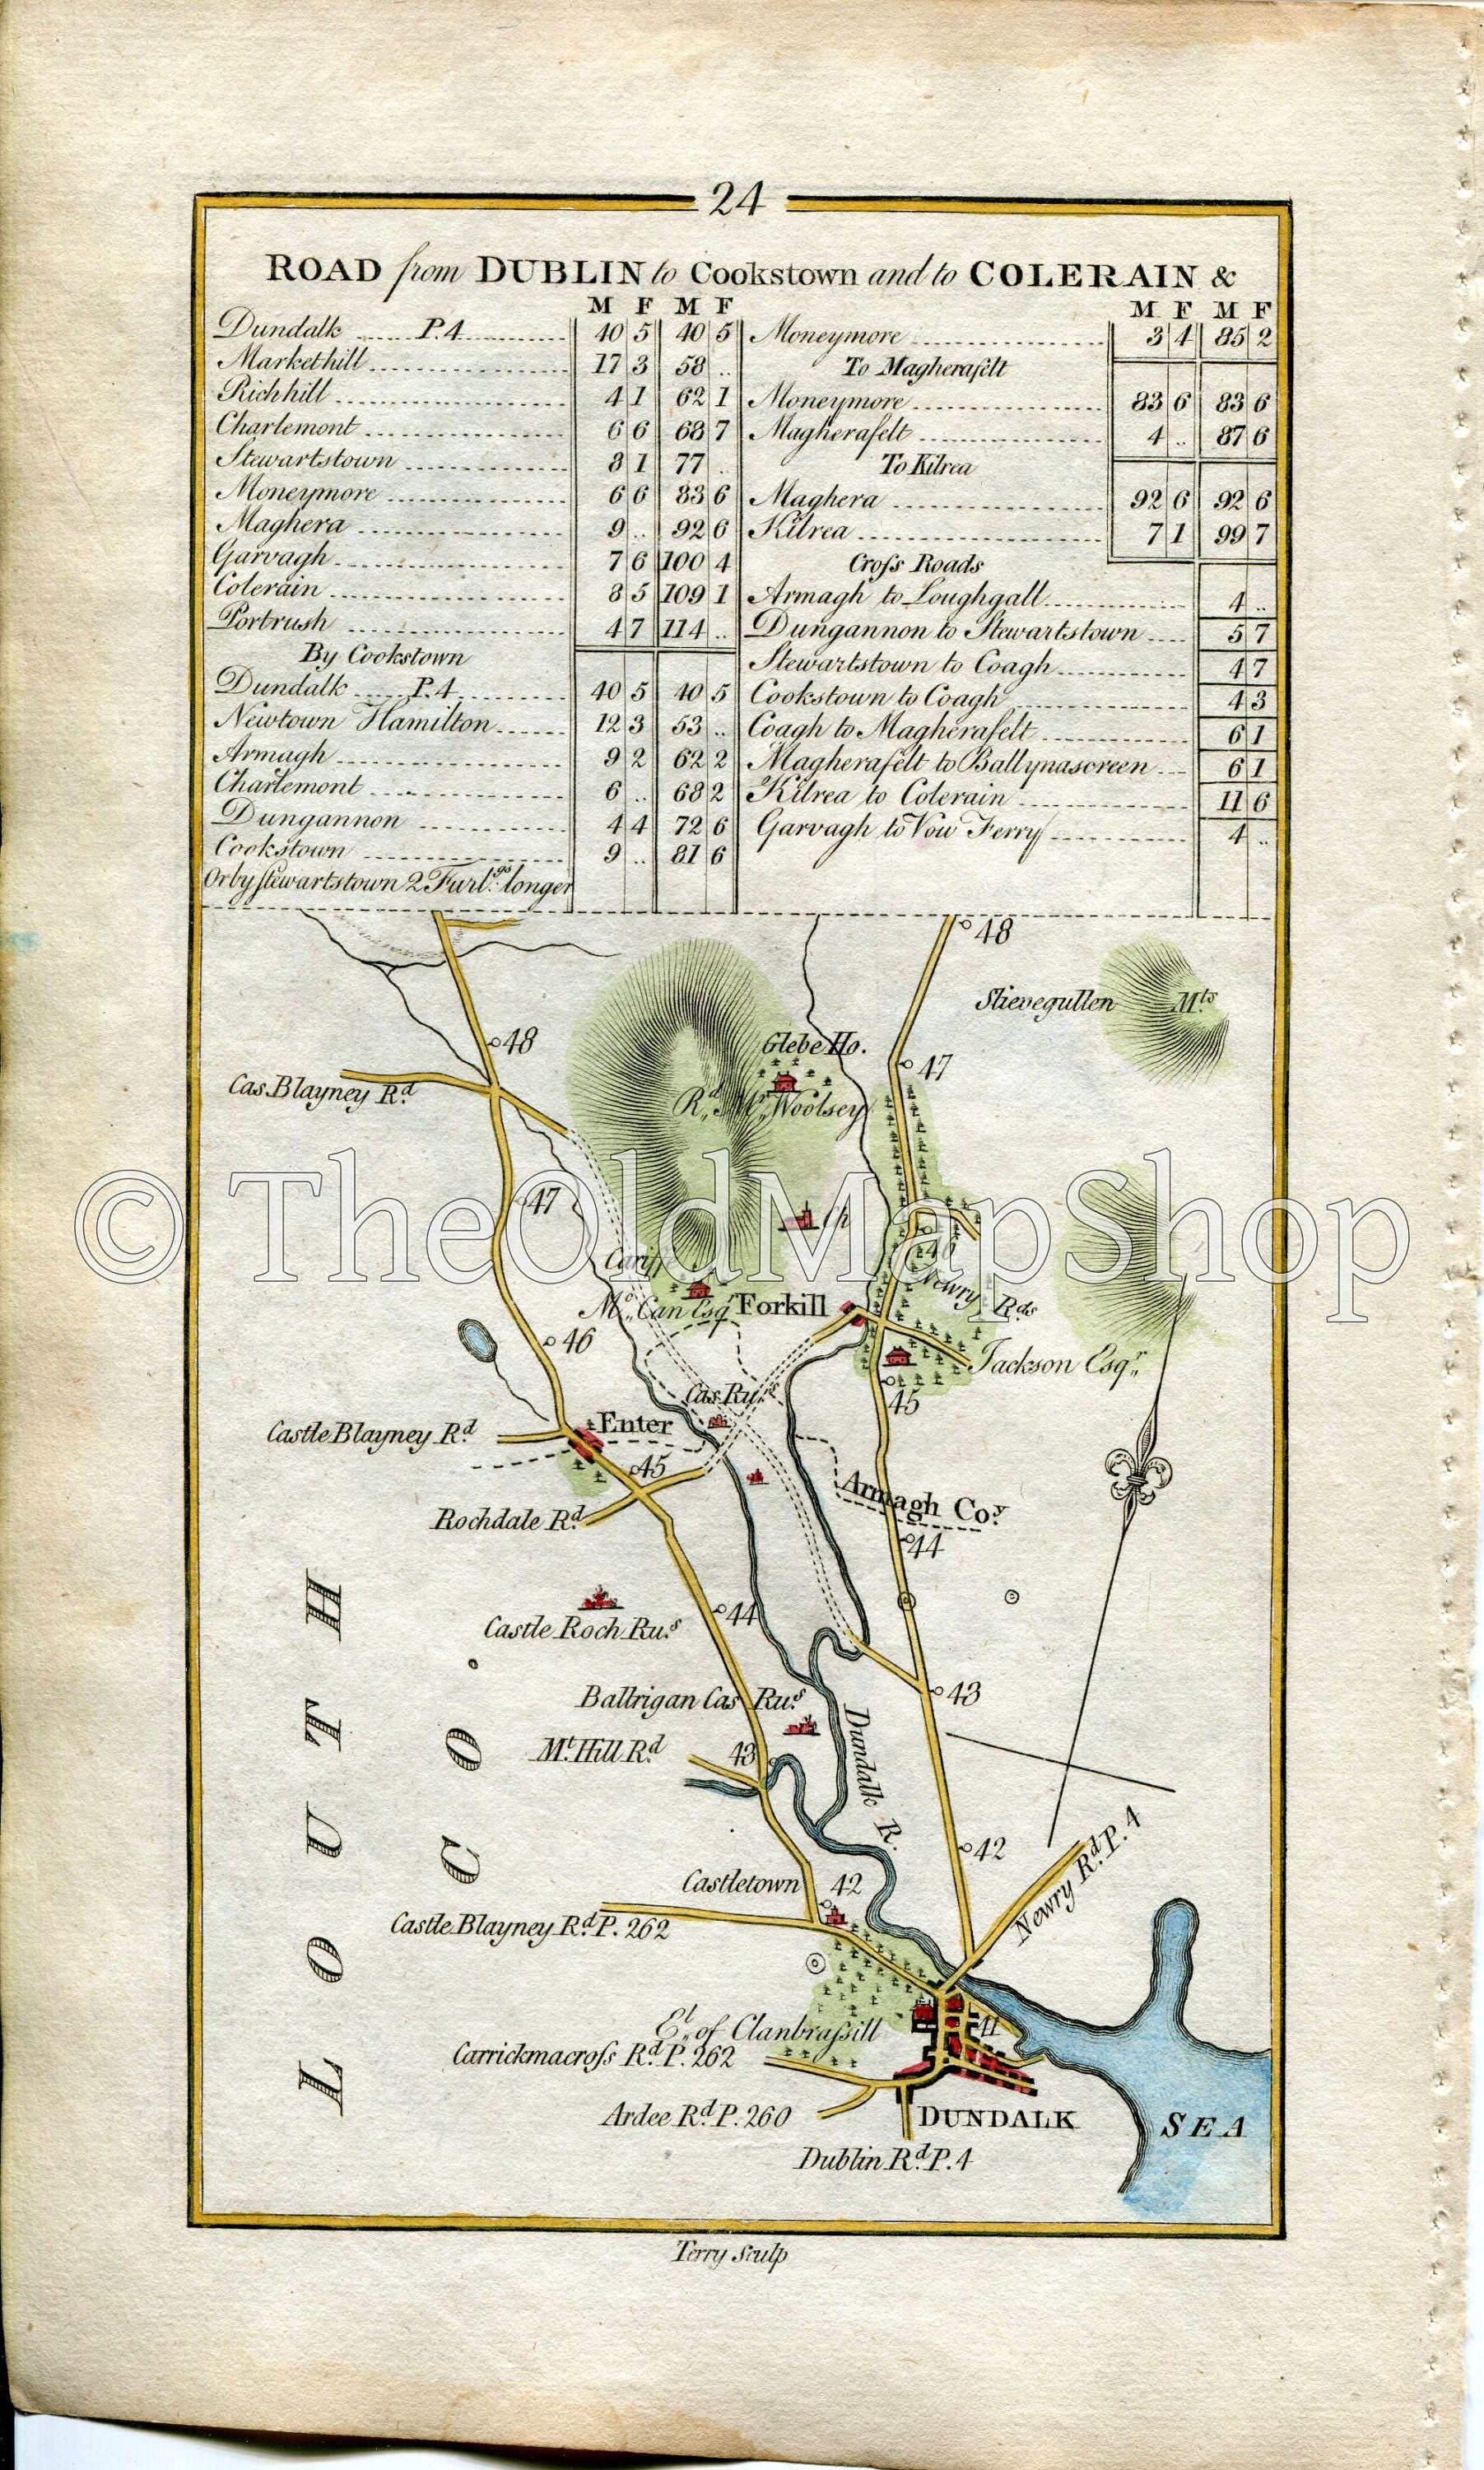 24
ROAD from DUBLIN to Cookstown and to COLERAIN &
M F M F
Dundalk P.4 40 5 40 5
Markethill 17 3 58 ..
Richhill 4 1 62 1
Charlemont 6 6 68 7
Stewartstown 8 1 77 .
Moneymore 6 6 83 6
Maghera 9 .. 92 6
Garvagh 7 6 100 4
Colerain 8 5 109 1
Portrush 4 7 114 ..
By Cookstown
Dundalk P.4 40 5 40 5
Newtown Hamilton 12 3 53 ..
Armagh 9 2 62 2
Charlemont 6 .. 68 2
Dungannon 4 4 72 6
Cookstown 9 .. 81 6
Or by Stewartstown 2 Furlgs. longer
M F M F
Moneymore 3 4 85 2
To Magherafelt
Moneymore 83 6 83 6
Magherafelt 4 .. 87 6
To Kilrea
Maghera 92 6 92 6
Kilrea 7 1 99 7
Cross Roads
Armagh to Loughgall 4 ..
Dungannon to Stewartstown 5 7
Stewartstown to Coagh 4 7
Cookstown to Coagh 4 3
Coagh to Magherafelt 6 1
Magherafelt to Ballynascreen 6 1
Kilrea to Colerain 11 6
Garvagh to Vow Ferry 4 ..
48
Slievegullen Mts
48
Glebe Ho.
47
Cas. Blayney Rd.
Rd. Mr. Woolsey
© TheOldMapShop
47
Ch
46
Newry Rds
Mc. Can Esqr
Forkill
46
Jackson Esqr.
Cas Rus
45
Castle Blayney Rd
Enter
45
Armagh Coy.
Rochdale Rd.
44
44
Castle Roch Rus
43
Balrigan Cas Rus
Dundalk R.
Mt. Hill Rd
43
LOUTH CO.
42
Newry Rd. P. 4
Castletown
42
Castle Blayney Rd. P. 262
El. of Clanbrassill
41
Carrickmacross Rd. P. 262
Ardee Rd. P. 260
DUNDALK
SEA
Dublin Rd. P. 4
Terry Sculp